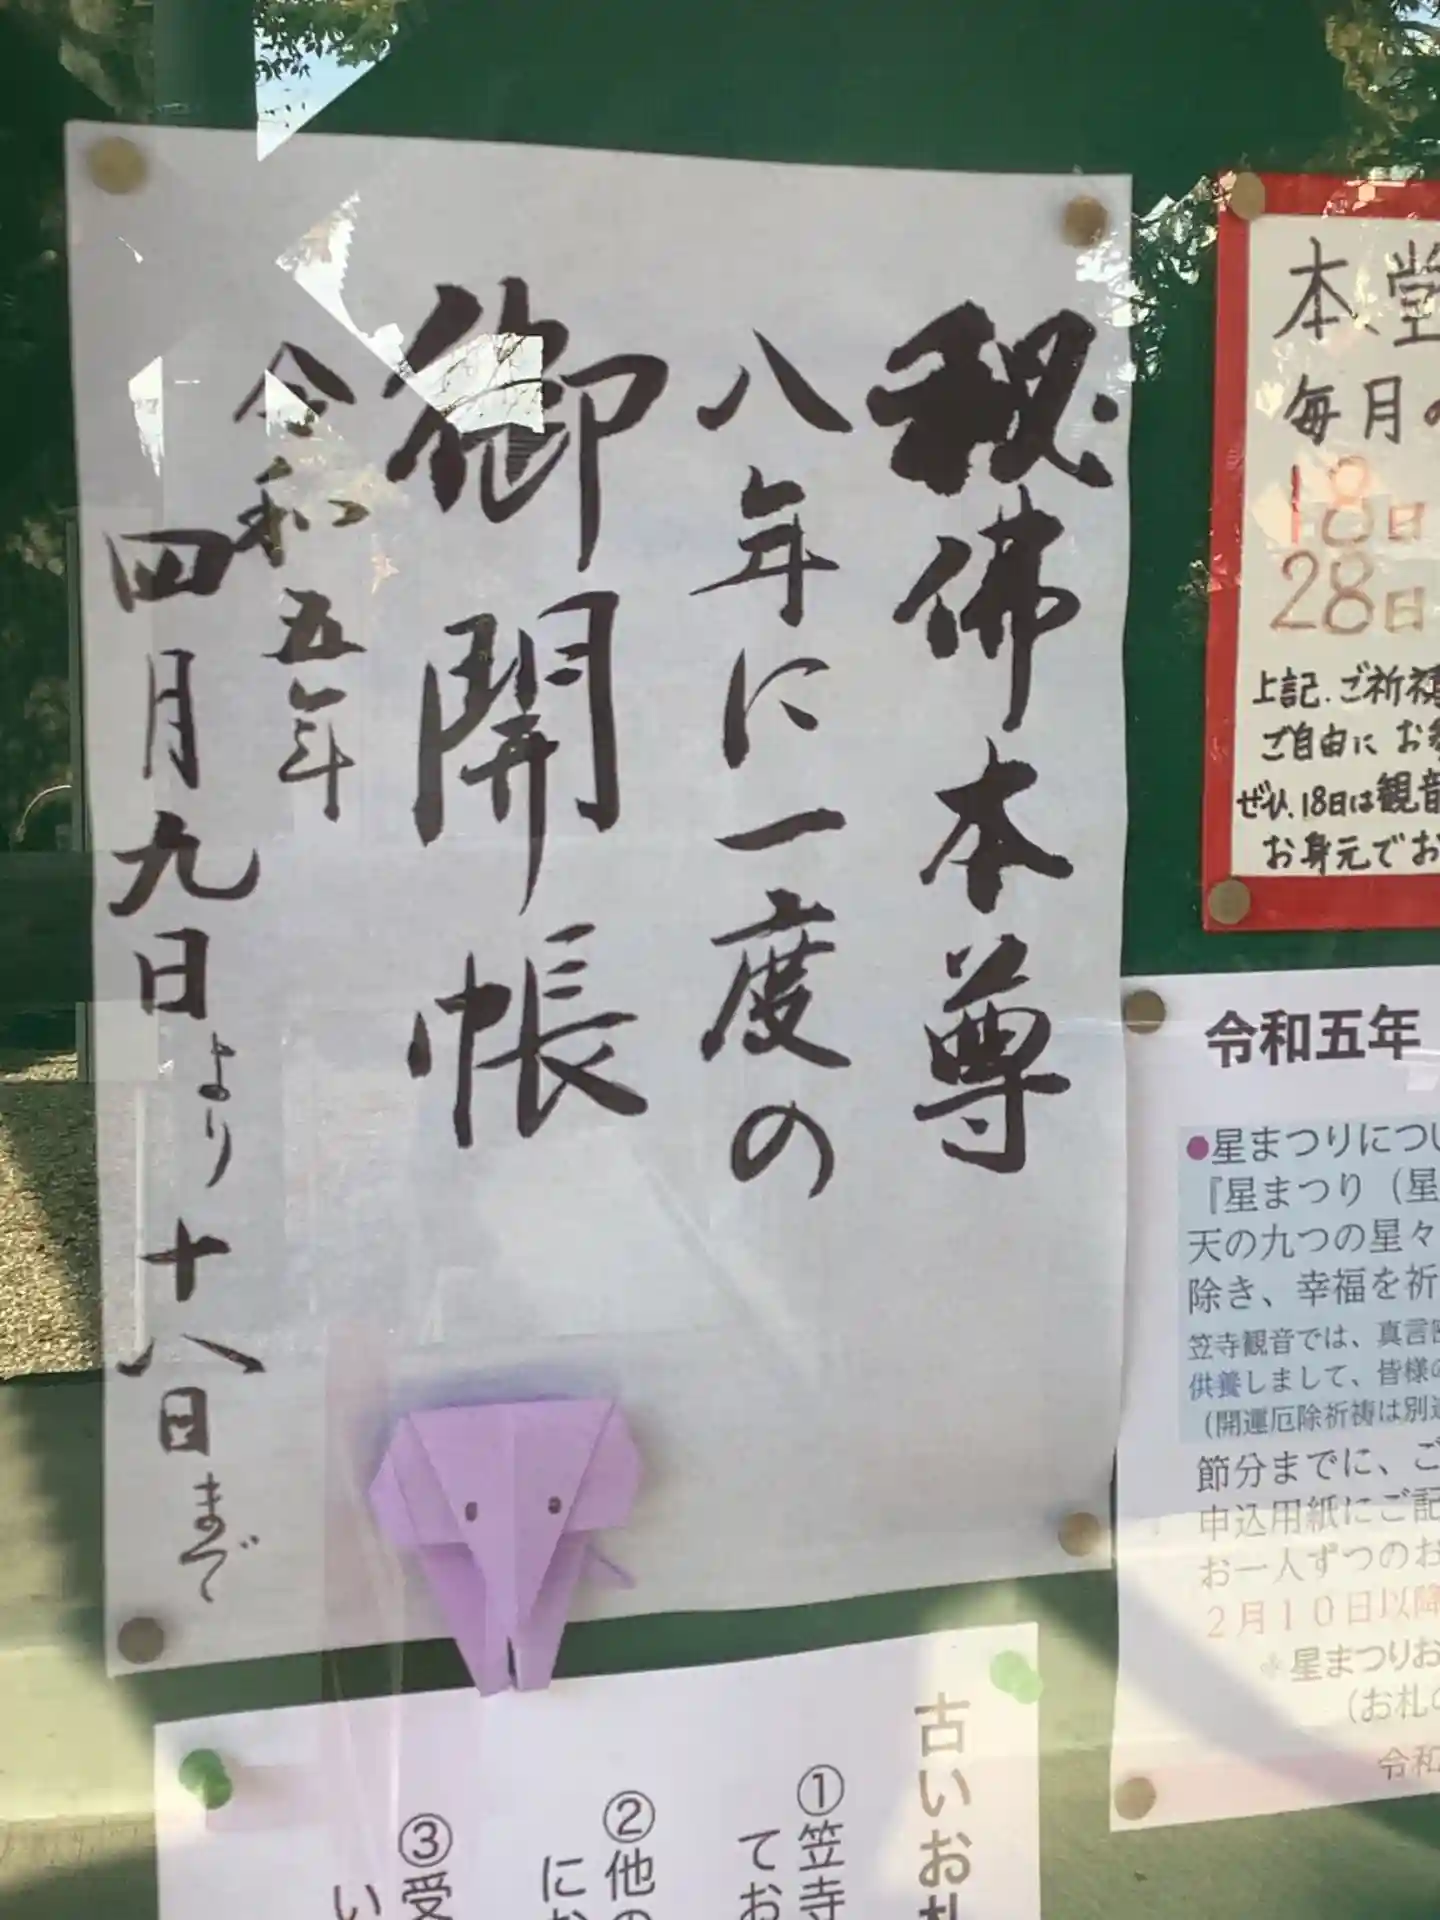 秘佛本尊
八年に一度の
御開帳
令和五年
四月九日より十八日まで
本堂
毎月の
18日
28日
上記.ご祈祷
ご自由にお参
ぜひ.18日は観音
お身元でお
令和五年
●星まつりについ
『星まつり（星
天の九つの星々
除き、幸福を祈
笠寺観音では、真言密
供養しまして、皆様の
（開運厄除祈祷は別途
節分までに、ご
申込用紙にご記
お一人ずつのお
２月１０日以降
星まつりお
（お札の
令和
古いお札
①笠寺
てお
②他の
にお
③受
い